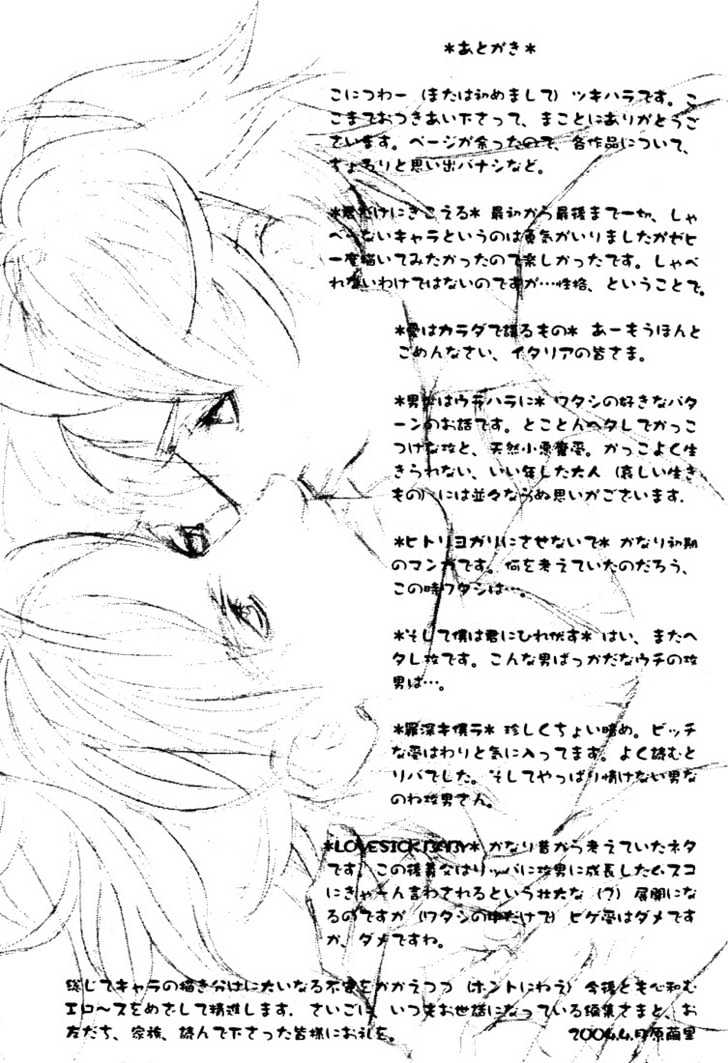 *あとがき*
こにつわー（または初めまして）ツキハラです。こ
こまでおつきあい下さって、まことにありがとうご
ざいます。ページが余ったので、各作品について、
ちょろりと思い出バナシなど。
*君だけにきこえる* 最初から最後まで一切、しゃ
べらないキャラというのは勇気がいりましたがゼヒ
一度描いてみたかったので楽しかったです。しゃべ
れないわけではないのですが…性格、ということで。
*愛はカラダで語るもの* あーもうほんと
ごめんなさい、イタリアの皆さま。
はウラハラに* ワタシの好きなパタ
ーンのお話です。とことんヘタレでかっこ
つけな攻と、天然小悪魔受。かっこよく生
きられない、いい年した大人（哀しい生き
もの）には並々ならぬ思いがございます。
*ヒトリヨガリにさせないで* かなり初期
のマンガです。何を考えていたのだろう、
この時ワタシは…。
*そして僕は君にひれふす* はい、またヘ
タレ攻です。こんな男ばっかだなウチの攻
男は…。
*罪深キ僕ラ* 珍しくちょい暗め。ビッチ
な受はわりと気に入ってます。よく読むと
リバでした。そしてやっぱり情けない男な
のね攻男さん。
*LOVESICK BABY* かなり昔から考えていたネタ
です。この後義父はリッパに攻男に成長したムスコ
にきゃん言わされるという壮大な（？）展開にな
るのですが（ワタシの中だけで）ヒゲ受はダメです
か、ダメですね。
総じてキャラの描き分けに大いなる不安をかかえつつ（ホントにねえ）今後とも心和む
エロ〜スをめざして精進します。さいごに、いつもお世話になっている編集さまと、お
友だち、家族、読んで下さった皆様にお礼を。 2004.4.月原繭里